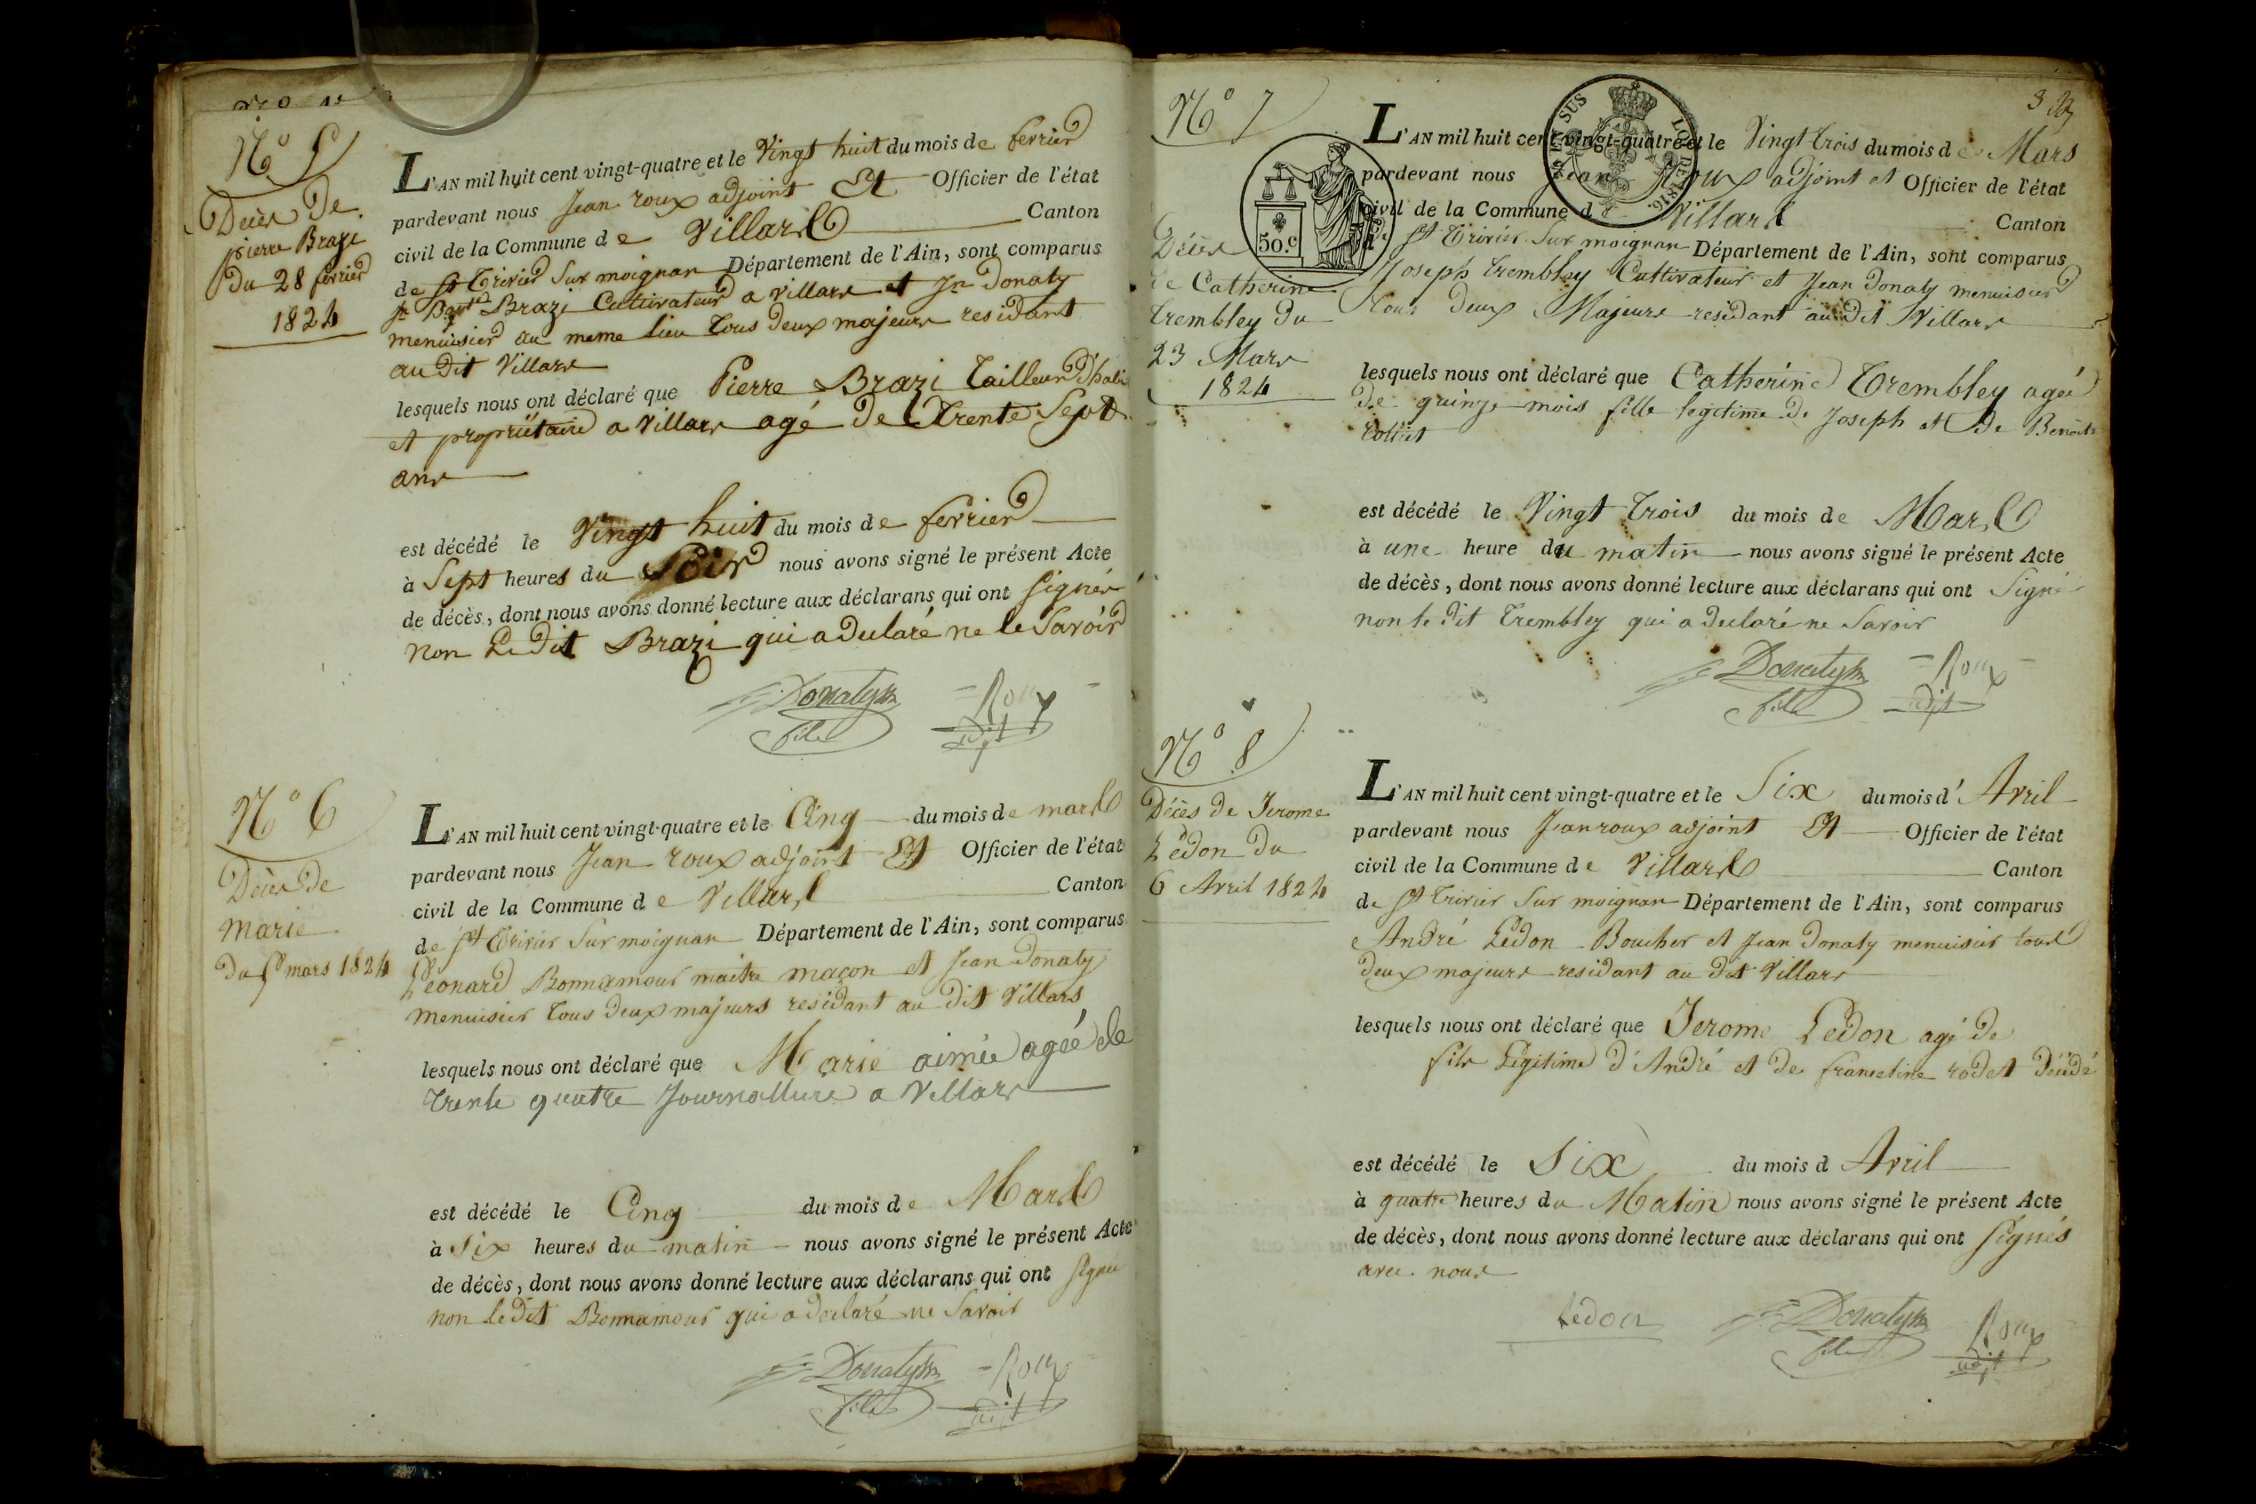 N° 5
Décès de
pierre Brazi
du 28 fevrier
1824
L'AN mil huit cent vingt-quatre et le Vingt huit du mois de fevrier
pardevant nous Jean roux adjoint Et Officier de l'état
civil de la Commune de Villars Canton
de St Trivier Sur moignan Département de l'Ain, sont comparus
Brazi Cultivateur a villars et Jn Donaty
menuisier au meme lieu tous deux majeurs residant
au dit Villars
lesquels nous ont déclaré que Pierre Brazi tailleur d'habi
et propriétaire a Villars agé de trente Sept
ans
est décédé le Vingt huit du mois de fevrier
à Sept heures du Soir nous avons signé le présent Acte
de décès, dont nous avons donné lecture aux déclarans qui ont signés
non Le dit Brazi qui a declaré ne le Savoir
Donaty
fils
Roux
adjt
N° 6
Décès de
marie
du 5 mars 1824
L'AN mil huit cent vingt-quatre et le Cinq du mois de mars
pardevant nous Jean roux adjoint Et Officier de l'état
civil de la Commune de Villars Canton
de St Trivier Sur moignan Département de l'Ain, sont comparus
Léonard Bonnamour maitre maçon et Jean Donaty
menuisier tous deux majeurs residant au dit Villars
lesquels nous ont déclaré que Marie aimée agée de
trente quatre Journalliere a Villars
est décédé le Cinq du mois de Mars
à Six heures du matin nous avons signé le présent Acte
de décès, dont nous avons donné lecture aux déclarans qui ont signé
non le dit Bonnamour qui a declaré ne Savoir
Donaty
fils
Roux
adjt
3
N° 7
Décès
de Catherine
Trembley du
23 Mars
1824
50.c
LOI DE 1816.
L'AN mil huit cent vingt-quatre et le Vingt trois du mois de Mars
pardevant nous Jean roux adjoint et Officier de l'état
civil de la Commune d Villars Canton
de St Trivier Sur moignan Département de l'Ain, sont comparus
Joseph Trembley Cultivateur et Jean Donaty menuisier
tous deux Majeurs residant au dit Villars
lesquels nous ont déclaré que Catherine Trembley agée
de quinze mois fille legitime de Joseph et de Benoite
est décédé le Vingt trois du mois de Mars
à une heure du matin nous avons signé le présent Acte
de décès, dont nous avons donné lecture aux déclarans qui ont Signé
non le dit Trembley qui a declaré ne Savoir
Donaty
fils
Roux
adjt
N° 8
Décès de Jerome
Ledon du
6 Avril 1824
L'AN mil huit cent vingt-quatre et le Six du mois d'Avril
pardevant nous Jean roux adjoint Et Officier de l'état
civil de la Commune de Villars Canton
de St Trivier Sur moignan Département de l'Ain, sont comparus
André Ledon Boucher et Jean Donaty menuisier tous
deux majeurs residant au dit Villars
lesquels nous ont déclaré que Jerome Ledon agé de
fils Légitime d'André et de francoline rodet Décédé
est décédé le Six du mois d Avril
à quatre heures du Matin nous avons signé le présent Acte
de décès, dont nous avons donné lecture aux déclarans qui ont signés
avec nous
Ledon
Donaty
fils
Roux
adjt